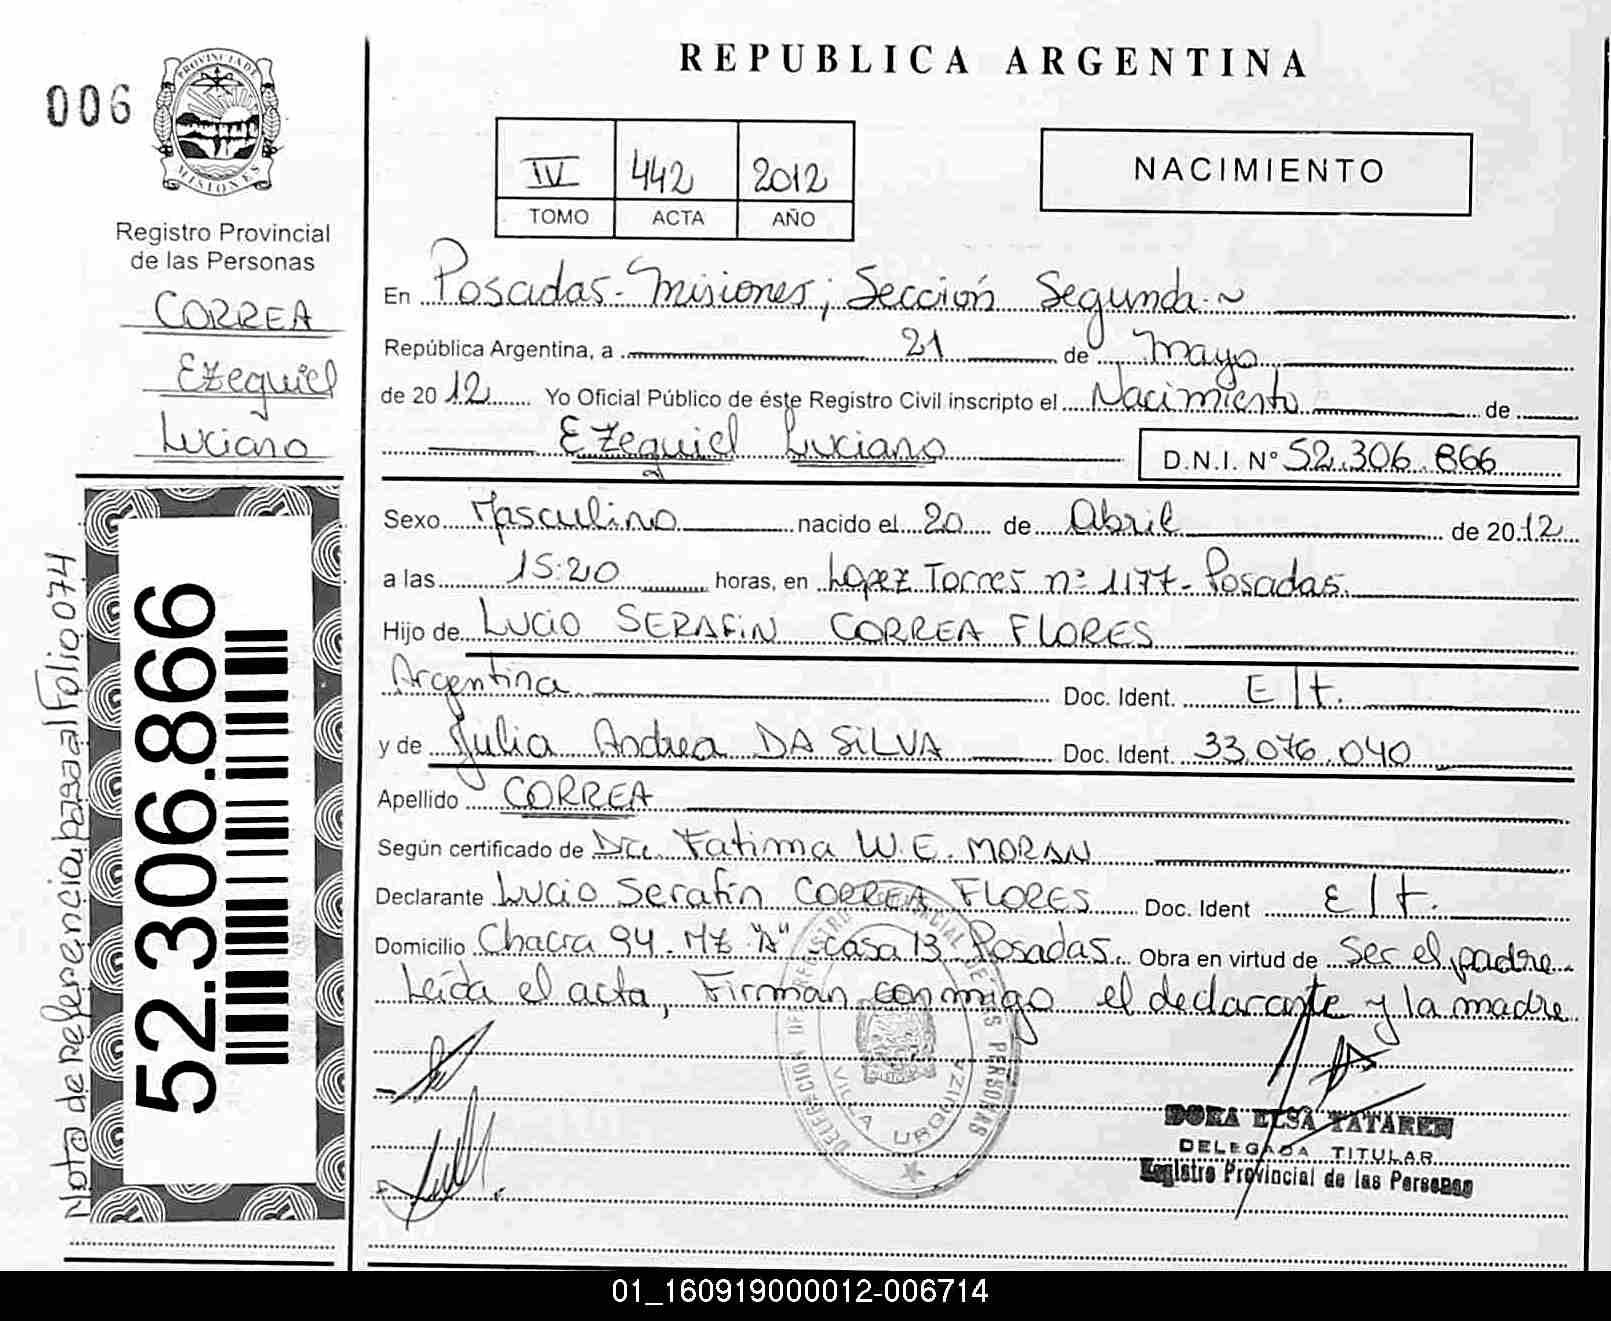 REPUBLICA ARGENTINA
006
PROVINCIA DE
MISIONES
Registro Provincial
de las Personas
CORREA
Ezequiel
Luciano
52.306.866
Nota de Referencia pasa al Folio 074
IV 442 2012
TOMO ACTA AÑO
NACIMIENTO
En Posadas - Misiones; Sección Segunda.~
República Argentina, a 21 de Mayo
de 2012 Yo Oficial Público de éste Registro Civil inscripto el Nacimiento de
Ezequiel Luciano D.N.I. N° 52.306.866
Sexo Masculino nacido el 20 de Abril de 2012
a las 15:20 horas, en Lopez Torres nº 1177 - Posadas.
Hijo de Lucio SERAFIN CORREA FLORES
Argentina Doc. Ident. E/t.
y de Julia Andrea DA SILVA Doc. Ident. 33.076.040
Apellido CORREA
Según certificado de Dra. Fatima W. E. MORAN
Declarante Lucio Serafin CORREA FLORES Doc. Ident E/t.
Domicilio Chacra 94 - Mz "A" - casa 13 Posadas. Obra en virtud de Ser el padre
Leída el acta, Firman conmigo el declarante y la madre
DELEGACION DEL REGISTRO PROVINCIAL DE LAS PERSONAS
VILLA URQUIZA
DORA ELSA TATAREN
DELEGADA TITULAR
Registro Provincial de las Personas
01_160919000012-006714